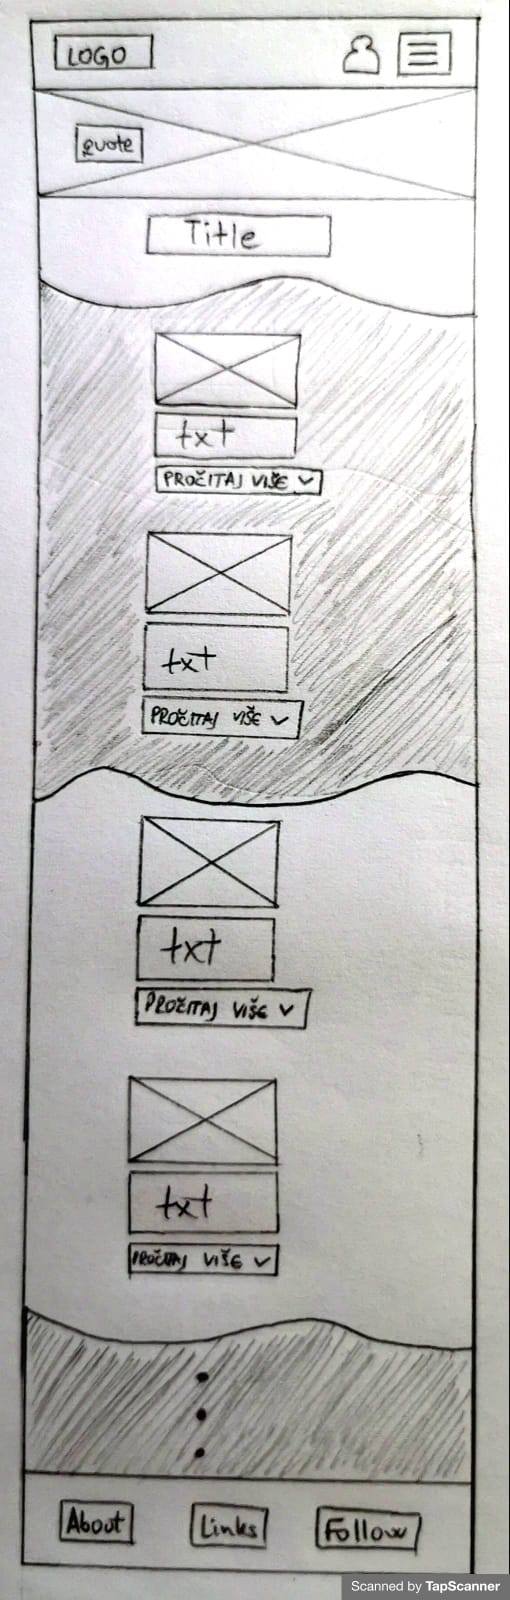 LOGO
Quote
Title
txt
PROČITAJ VIŠE
txt
PROČITAJ VIŠE
txt
PROČITAJ VIŠE
txt
PROČITAJ VIŠE
About
Links
Follow
Scanned by TapScanner